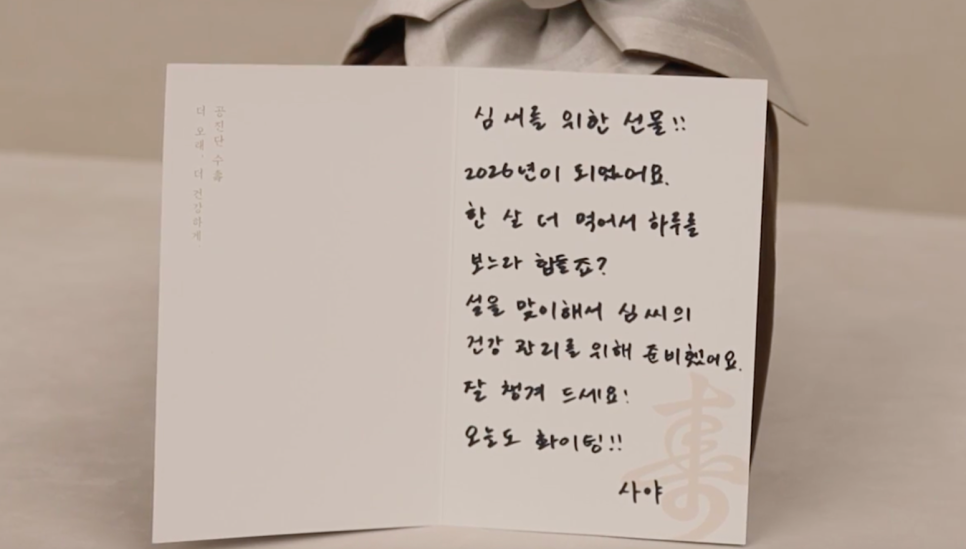 공진단 수춤
더 오래, 더 건강하게
심 씨를 위한 선물!!
2026년이 되었어요.
한 살 더 먹어서 하루를
보느라 힘들죠?
설을 맞이해서 심 씨의
건강 관리를 위해 준비했어요.
잘 챙겨 드세요!
오늘도 화이팅!!
사야
壽